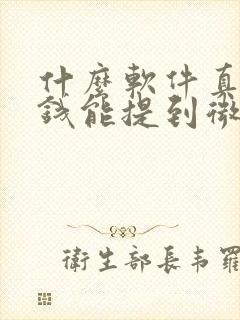 什麼軟件真
錢能提到微
衛生部長韦羅